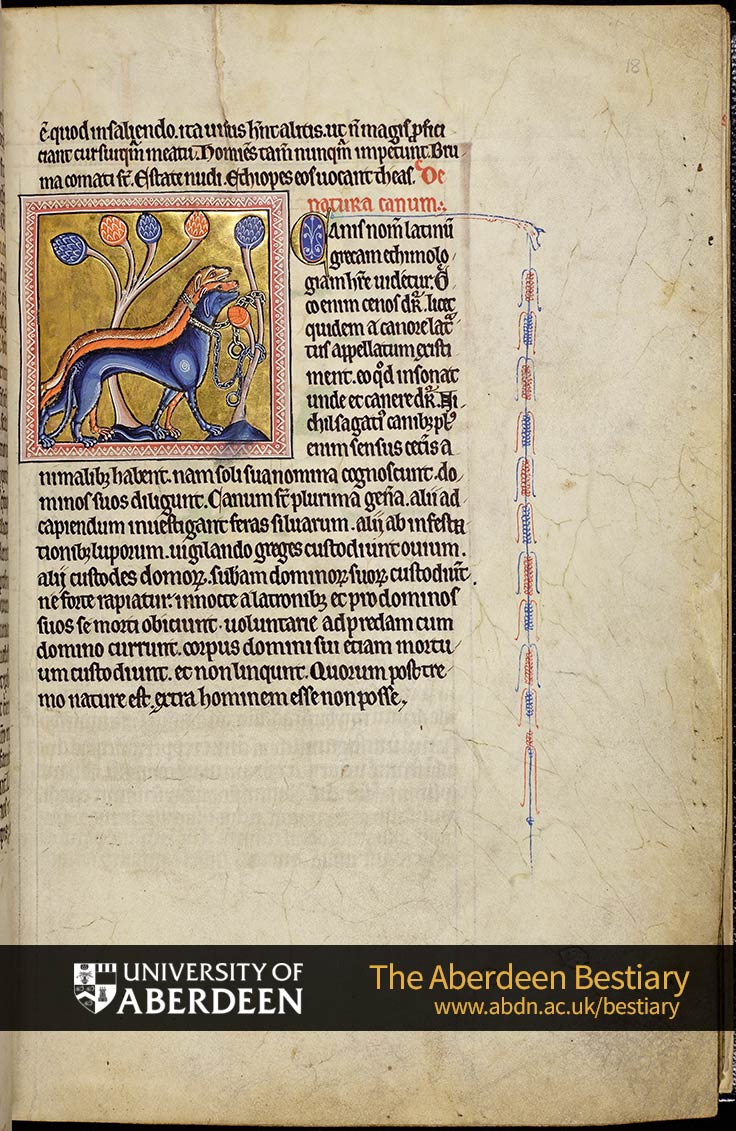 18
ē quod insaliendo. ita uisus hn̄t alitis. ut n̄ magis ꝓfici
ciant cursu quā meatu. Homīes tam̄ nunquā impetunt. Bru
ma comati sc̄. Estate nudi. Ethiopes eos uocant theas. De
natura canum.
Canis nom̄ latinū
grecam ethimolo
giam hr̄e uidetur. G̅
co enim cenos dr̄. licet
quidem a canore lat̄
tus appellatum existi
ment. eo qd̄ insonat
unde et canere dr̄. Ni
chil sagatiꝰ canibꝫ plꝰ
enim sensus cet̄is a
nimalibꝫ habent. nam soli sua nomina cognoscunt. do
minos suos diligunt. Canum sc̄ plurima gen̄a. alii ad
capiendum inuestigant feras siluarum. alij ab infesta
tionibꝫ luporum. uigilando greges custodiunt ouium.
alij custodes domoꝝ. subam dominoꝝ suoꝝ custodiūt
ne forte rapiatur. in nocte a latronibꝫ et pro dominos
suos se morti obiciunt. uoluntarie ad predam cum
domino currunt. corpus domini sui etiam mortu
um custodiunt. et non linqunt. Quorum postre
mo nature est. extra hominem esse non posse,
UNIVERSITY OF
ABERDEEN
The Aberdeen Bestiary
www.abdn.ac.uk/bestiary